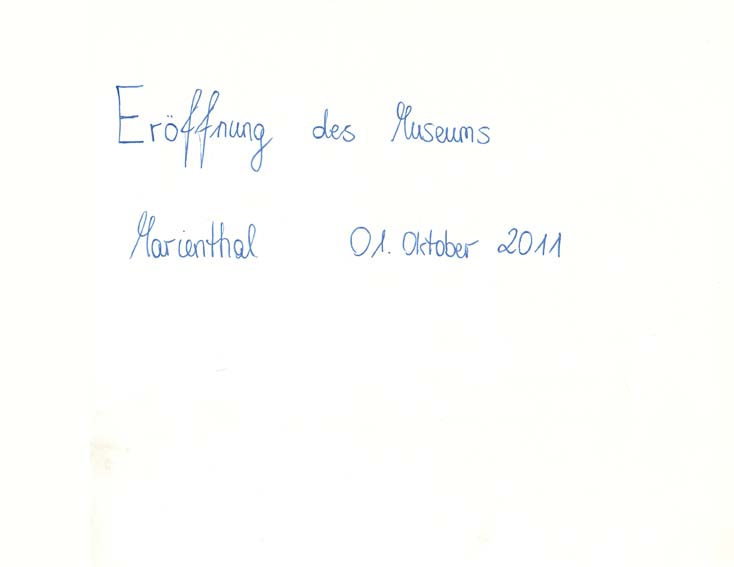 Eröffnung des Museums
Marienthal 01. Oktober 2011